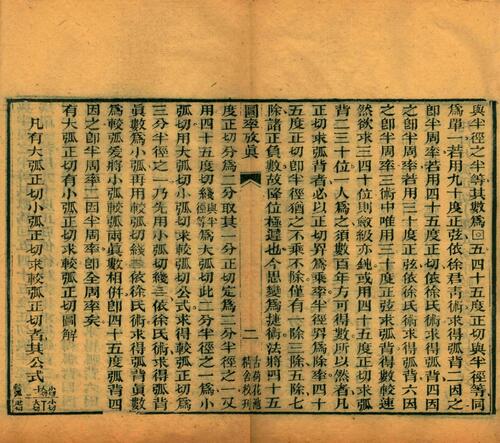 與半徑之半等其數為回五四十五度正切與半徑等同
為單一若用九十度正弦依徐君青術求得弧背二因之
卽半周率若用四十五度正切依徐氏術求得弧背四因
之卽半周率若用三十度正弦依徐氏術求得弧背六因
之卽半周率三術中唯用三十度正弦求弧背得數較速
然欲求四十位則亦鈍或用四十五度正切求弧
背二三十位一人為之須數百年方可得數所以然者凡
正切求弧背者必以正切昇為乘率半徑昇為除率四十
五度正切與半徑等猶之不乘不除僅有一除三除五除七
除諸正負數故降位極遲也今思變為捷術法將四十五
圜率攷眞
二
古荷花池
精舍校刊
度正切分為二分取其一分正切定為二分半徑之一又
用四十五度切綫與半徑等為大弧切此二分半徑之一為小
弧切用大弧切小弧切求較弧切公式求得較弧切綫為
三分半徑之一乃先用小弧切綫依徐氏術求得弧背眞
數為小弧再用較弧切綫依徐氏術求得弧背眞數
為較弧爰將小弧較弧兩眞數相併卽四十五度弧背四
因之卽半周率二因半周率卽全周率矣
有大弧正切有小弧正切求較弧正切圖解
凡有大弧正切小弧正切求較弧正切者其公式